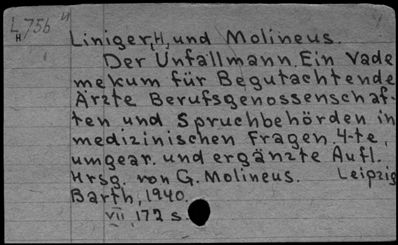 L 756 4
H
Liniger, H, und Molineus.
Der Unfallmann. Ein Vade
mekum für Begutachtende
Ärzte Berufsgenossenschaf-
ten und Spruchbehörden in
medizinischen Fragen. 4-te,
umgear. und ergänzte Aufl.
Hrsg. von G. Molineus. Leipzig
Barth, 1940.
VII, 172 s.